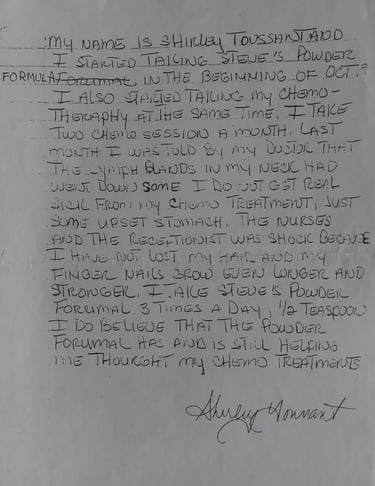 MY NAME IS SHIRLEY TOUSSANT AND
I STARTED TAILING STEVE'S POWDER
FORMULA FORUMAL IN THE BEGINNING OF OCT.?
I ALSO STARTED TAILING MY CHEMO-
THERAPHY AT THE SAME TIME. I TAKE
TWO CHEMO SESSION A MONTH. LAST
MONTH I WAS TOLD BY MY DOCTOR THAT
THE LYMPH GLANDS IN MY NECK HAD
WENT DOWN SOME I DO NOT GET REAL
SICK FROM MY CHEMO TREATMENT, JUST
SOME UPSET STOMACH. THE NURSES
AND THE RECEPTIONIST WAS SHOCK BECAUSE
I HAVE NOT LOST MY HAIR AND MY
FINGER NAILS GROW EVEN LONGER AND
STRONGER. I TAKE STEVE'S POWDER
FORUMAL 3 TIMES A DAY, 1/2 TEASPOON
I DO BELIEVE THAT THE POWDER
FORUMAL HAS AND IS STILL HELPING
ME THOUGHT MY CHEMO TREATMENTS
Shirley